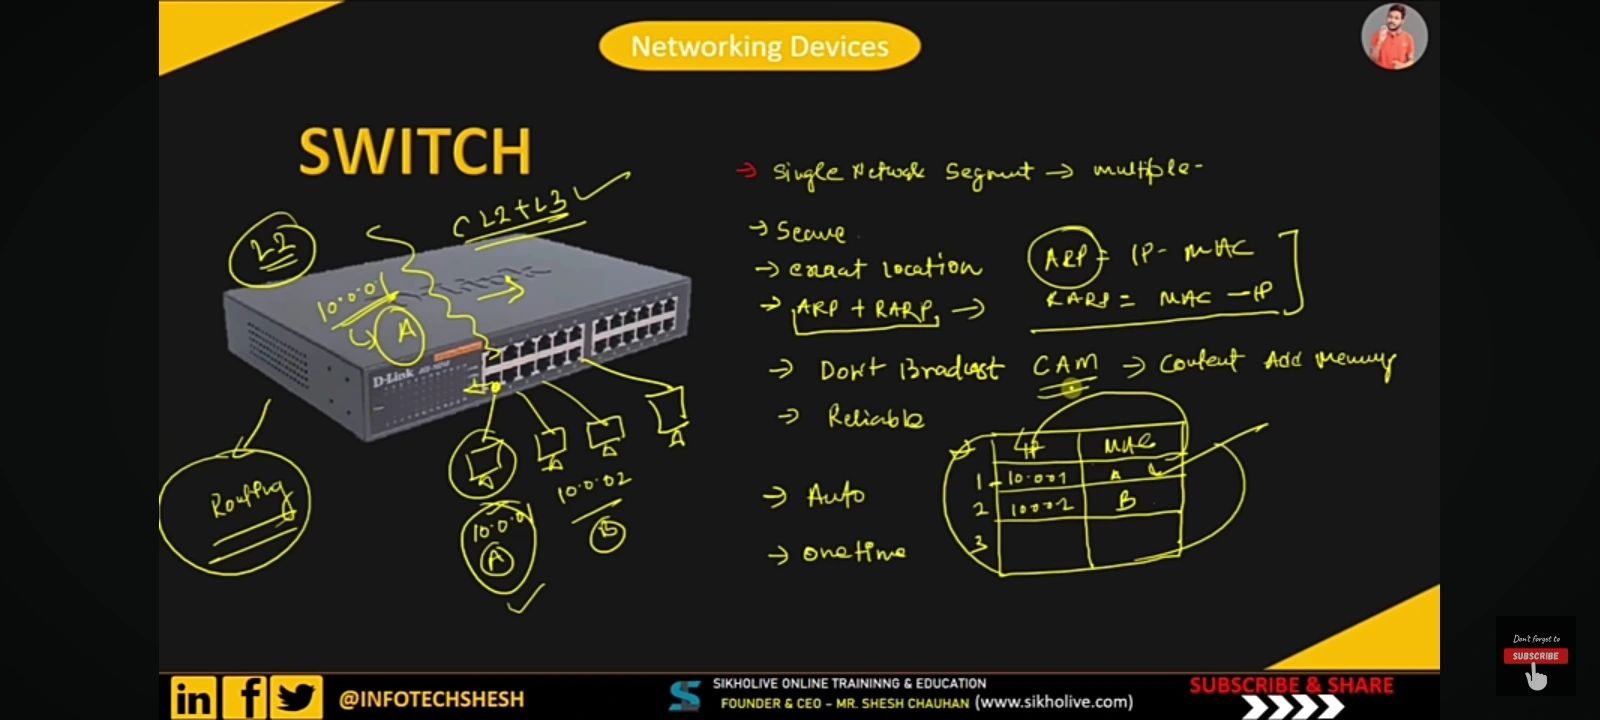 Networking Devices
SWITCH
(L2+L3
L2
10.0.01
A
D-Link
Routing
10.0.01
A
10.0.02
B
→ Single Network Segment → multiple-
→ Secure
→ exact location
→ ARP + RARP, →
ARP = IP - MAC
RARP = MAC - IP
→ Don't Bradcast
CAM → Content Add Memmy
→ Reliable
→ Auto
→ onetime
IP MAC
1 10.001 A
2 10002 B
3
@INFOTECHSHESH
SIKHOLIVE ONLINE TRAININNG & EDUCATION
FOUNDER & CEO - MR. SHESH CHAUHAN (www.sikholive.com)
SUBSCRIBE & SHARE
Don't forget to
SUBSCRIBE